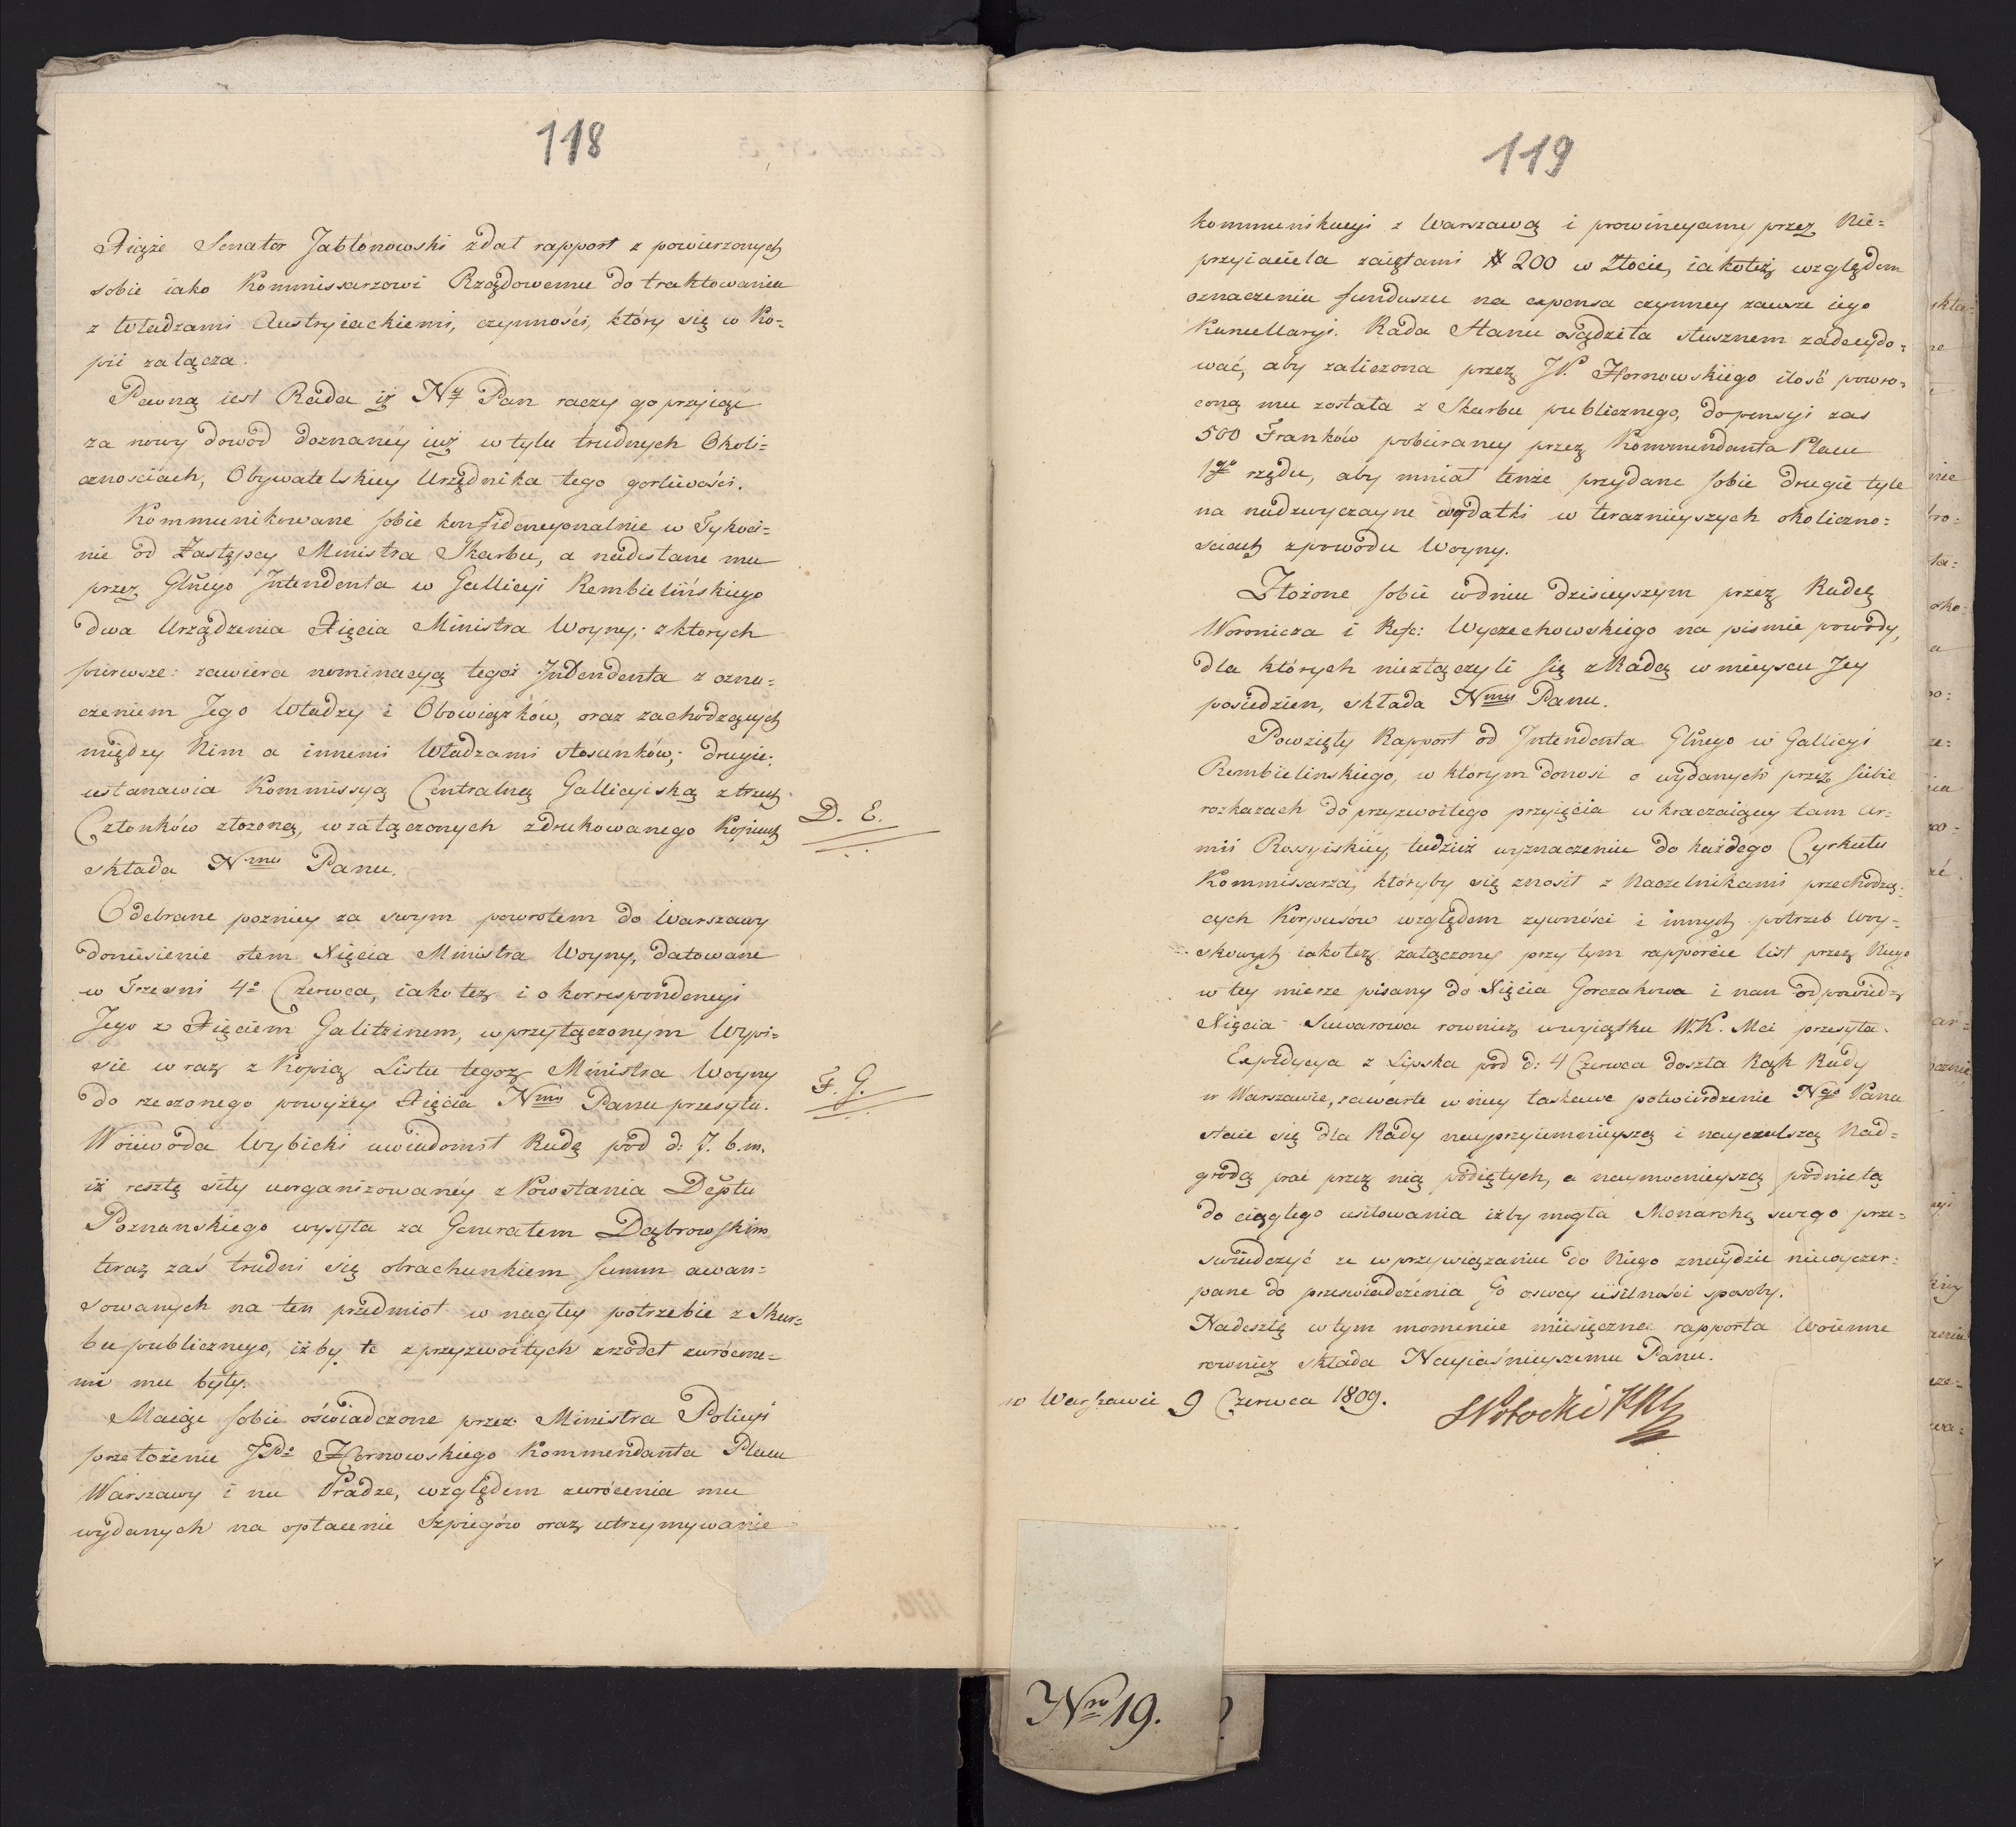 118
Xiąże Senator Jabłonowski zdał rapport z powierzonych
sobie iako Kommissarzowi Rządowemu do traktowania
z Władzami Austryiackiemi, czynności, który się w Ko=
pii załącza.
Pewną iest Rada iż Ny Pan raczy go przyiąć
za nowy dowód doznanéy iuż w tylu trudnych Okoli=
cznościach, Obywatelskiey Urzędnika tego gorliwości.
Kommunikowane sobie konfidencyonalnie w Tykoci=
nie od Zastępcy Ministra Skarbu, a nadesłane mu
przez Głnego Intendenta w Gallicyi Rembielińskiego
dwa Urządzenia Xięcia Ministra Woyny; z których
pierwsze: zawiera nominacyą tegoż Indendenta z ozna=
czeniem Jego Władzy i Obowiązków, oraz zachodzących
między Nim a innemi Władzami stosunków; drugie:
ustanawia Kommissyą Centralną Gallicyiską z trzech
Członków złożoną, w załączonych z drukowanego Kopiach
D. E.
składa Nmu Panu.
Odebrane pozniey za swym powrotem do Warszawy
doniesienie otem Xięcia Ministra Woyny, datowane
w Trzesni 4º Czerwca, iako też i o korrespondencyi
Jego z Xięciem Galitzinem, w przyłączonym Wypi=
sie wraz z Kopią Listu tegoż Ministra Woyny
F. G.
do rzeczonego powyżey Xięcia Nmu Panu przesyła.
Woiewoda Wybicki uwiadomił Radę pod d: 7. b.m.
iż resztę siły uorganizowanéy z Powstania Deptu
Poznanskiego wysyła za Generałem Dąbrowskim
teraz zaś trudni się obrachunkiem summ awan=
sowanych na ten przedmiot w nagłey potrzebie z Skar=
bu publicznego, iżby te z przyzwoitych zrzódeł zwrócone=
mi mu były.
Maiąc sobie oświadczone przez Ministra Policyi
przełożenie JPa Hornowskiego Kommendanta Placu
Warszawy i na Pradze, względem zwrócenia mu
wydanych na opłacenie Szpiegów oraz utrzymywanie
119
kommunikacyi z Warszawą i prowincyami przez Nie=
przyiaciela zaiętami # 200 w Złocie, iakoteż względem
oznaczenia funduszu na expensa czynney zawsze iego
Kancellaryi. Rada Stanu osądziła słusznem zadecydo=
wać, aby zaliczona przez JP. Hornowskiego ilość powro=
coną mu została z Skarbu publicznego, do pensyi zas
500 Franków pobieraney przez Kommendanta Placu
1go rzędu, aby mniał tenże przydane sobie drugie tyle
na nadzwyczayne wydatki w teraznieyszych okoliczno=
sciach z powodu Woyny.
Złożone sobie w dniu dzisieyszym przez Radcę
Woronicza i Refe: Wyczechowskiego na pismie powody,
dla których niezłączyli się z Radą w mieyscu Jey
posiedzien, składa Nmu Panu.
Powzięty Rapport od Intendenta Głnego w Gallicyi
Rembielinskiego, w którym donosi o wydanych przez siebie
rozkazach do przyzwoitego przyięcia wkraczaiącey tam Ar=
mii Rossyiskiey, tudzież wyznaczeniu do każdego Cyrkułu
Kommissarza, któryby się znosił z Naczelnikami przechodzą=
cych Korpusów względem zywności i innych potrzeb Woy=
skowych iakoteż załączony przy tym rapporcie list przez Niego
w tey mierze pisany do Xięcia Gorczakowa i nan odpowiedz
Xięcia Suwarowa rownież w wyiątku W.K. Mci przesyła.
Expedycya z Lipska pod d: 4 Czerwca doszła Rąk Rady
w Warszawie, zawarte w niey łaskawe potwierdzenie Ngo Pana
staie się dla Rady nayprzyiemnieyszą i nayczulszą Nad=
grodą prac przez nią podiętych, a naymocnieyszą podnietą
do ciągłego usiłowania iżby mogła Monarchę swego prze=
swiadczyć ze w przywiązaniu do Niego znaydzie niewyczer=
pane do przeswiadczenia Go o swey usilności sposoby.
Nadeszłę w tym momencie miesięczne rapporta Woienne
rownież składa Nayiaśnieyszemu Panu.
w Warszawie 9 Czerwca 1809.
SPotocki
Nro 19.